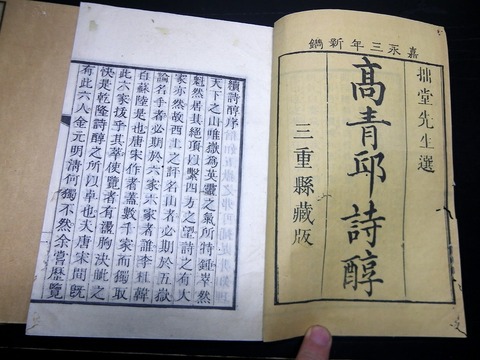 嘉永三年新鐫
拙堂先生選
髙青邱詩醇
三重縣藏版
續詩醇序
天下之山唯嶽爲英靈之氣所特鍾崒然
魁然居其絕頂以繫四方之望詩之有大
家亦然故西土之評名山者必期於五嶽
論名手者必期於六家六家者誰李杜韓
白蘇陸是也唐宋作者蓋數千家而獨取
此六家拔乎其萃使覽者有盪胸決眦之
快是乾隆詩醇之所以卓也夫唐宋間既
有此六人金元明清何獨不然余嘗歷覽